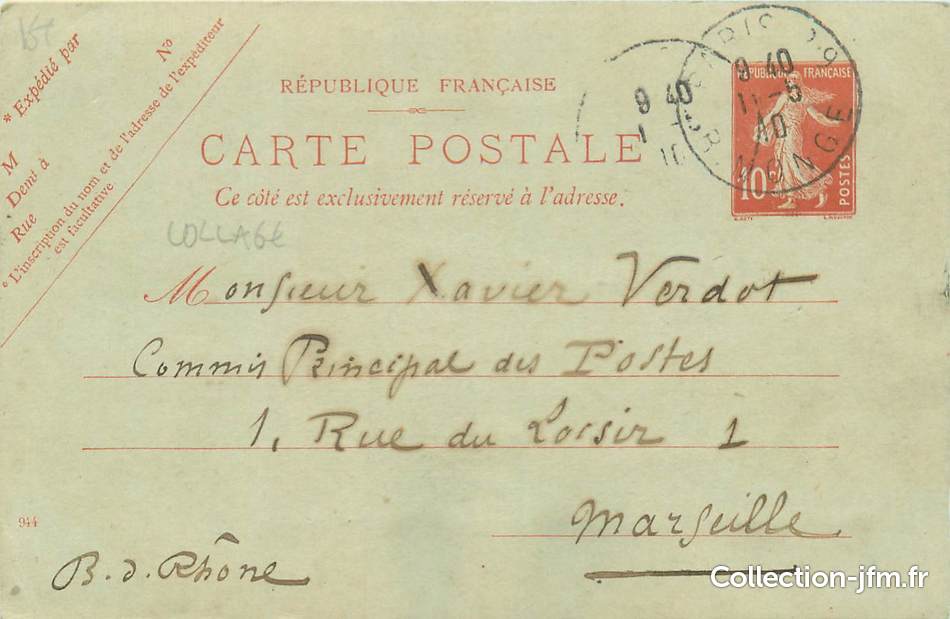 * Expédié par
M
Demt à
Rue
N°
* L'inscription du nom et de l'adresse de l'expéditeur
est facultative
RÉPUBLIQUE FRANÇAISE
CARTE POSTALE
Ce côté est exclusivement réservé à l'adresse.
COLLAGE
9 40
RÉPUBLIQUE FRANÇAISE
9 40
11 - 5
10
10c
POSTES
Monsieur Xavier Verdot
Commis Principal des Postes
1, Rue du Loisir 1
Marseille
944
B. d. Rhône
Collection-jfm.fr